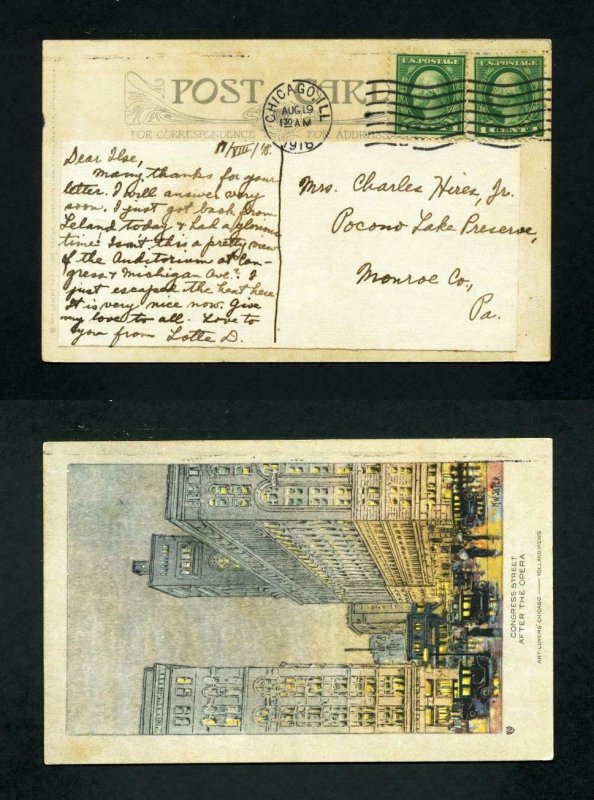 POST CARD
FOR CORRESPONDENCE
FOR ADDRESS
CHICAGO, ILL
AUG 19
1916
U.S. POSTAGE
U.S. POSTAGE
1 CENT 1
Dear Ilse,
Many thanks for your
letter. I will answer very
soon. I just got back from
Leland today & had a glorious
time! Isn't this a pretty view
of the Auditorium at Con-
gress & Michigan Ave? I
just escaped the heat here
It is very nice now. Give
my love to all. Love to
you from Lotte D.
Mrs. Charles Hires, Jr.
Pocono Lake Preserve,
Monroe Co,
Pa.
CONGRESS STREET
AFTER THE OPERA
ART-LOVERS' CHICAGO — VOLLAND VIEWS